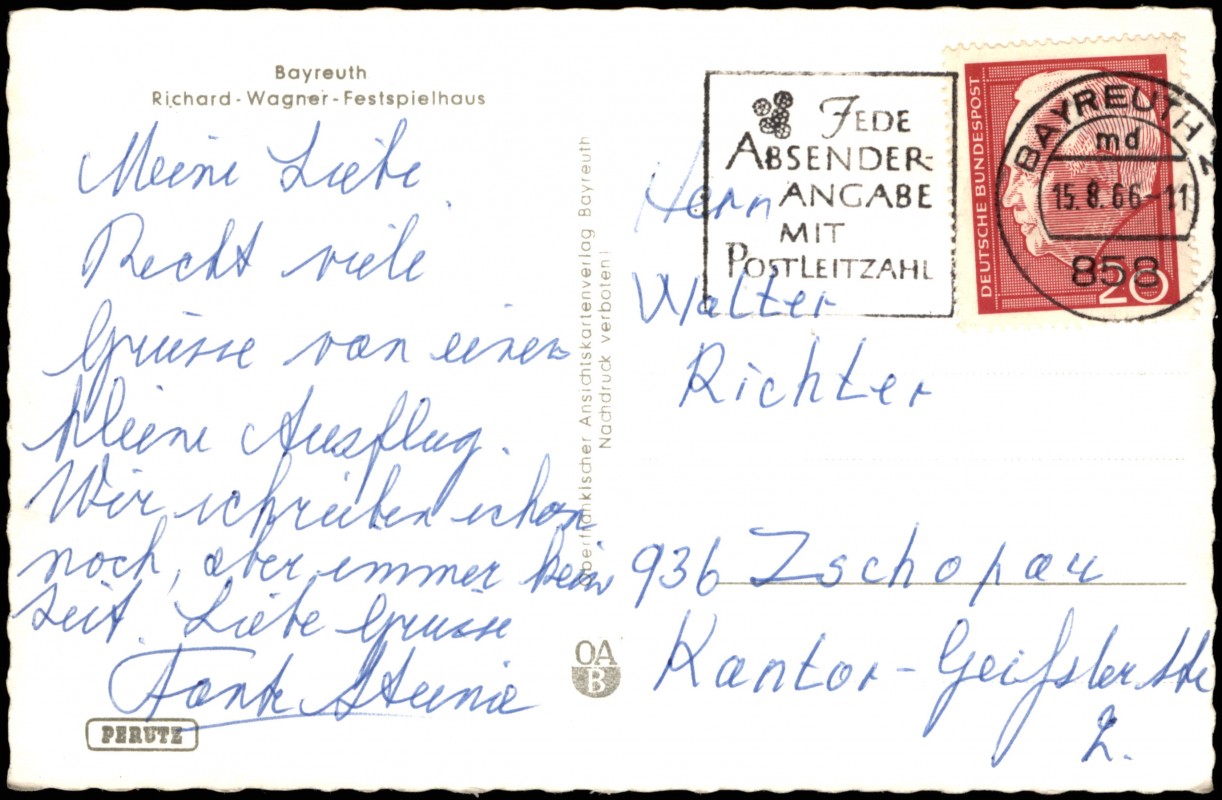 Bayreuth
Richard-Wagner-Festspielhaus
Meine Liebe
Recht viele
Grüsse von einen
kleine Ausflug.
Wir schreiben schon
noch, aber immer kein
Zeit. Liebe Grüsse
Tante
PERUTZ
Oberfränkischer Ansichtskartenverlag Bayreuth
Nachdruck verboten!
OA
B
JEDE
ABSENDER-
ANGABE
MIT
POSTLEITZAHL
DEUTSCHE BUNDESPOST
20
BAYREUTH 2
md
15.8.66-11
858
Herrn
Walter
Richter
936 Zschopau
Kantor-Geißlerstr
2.